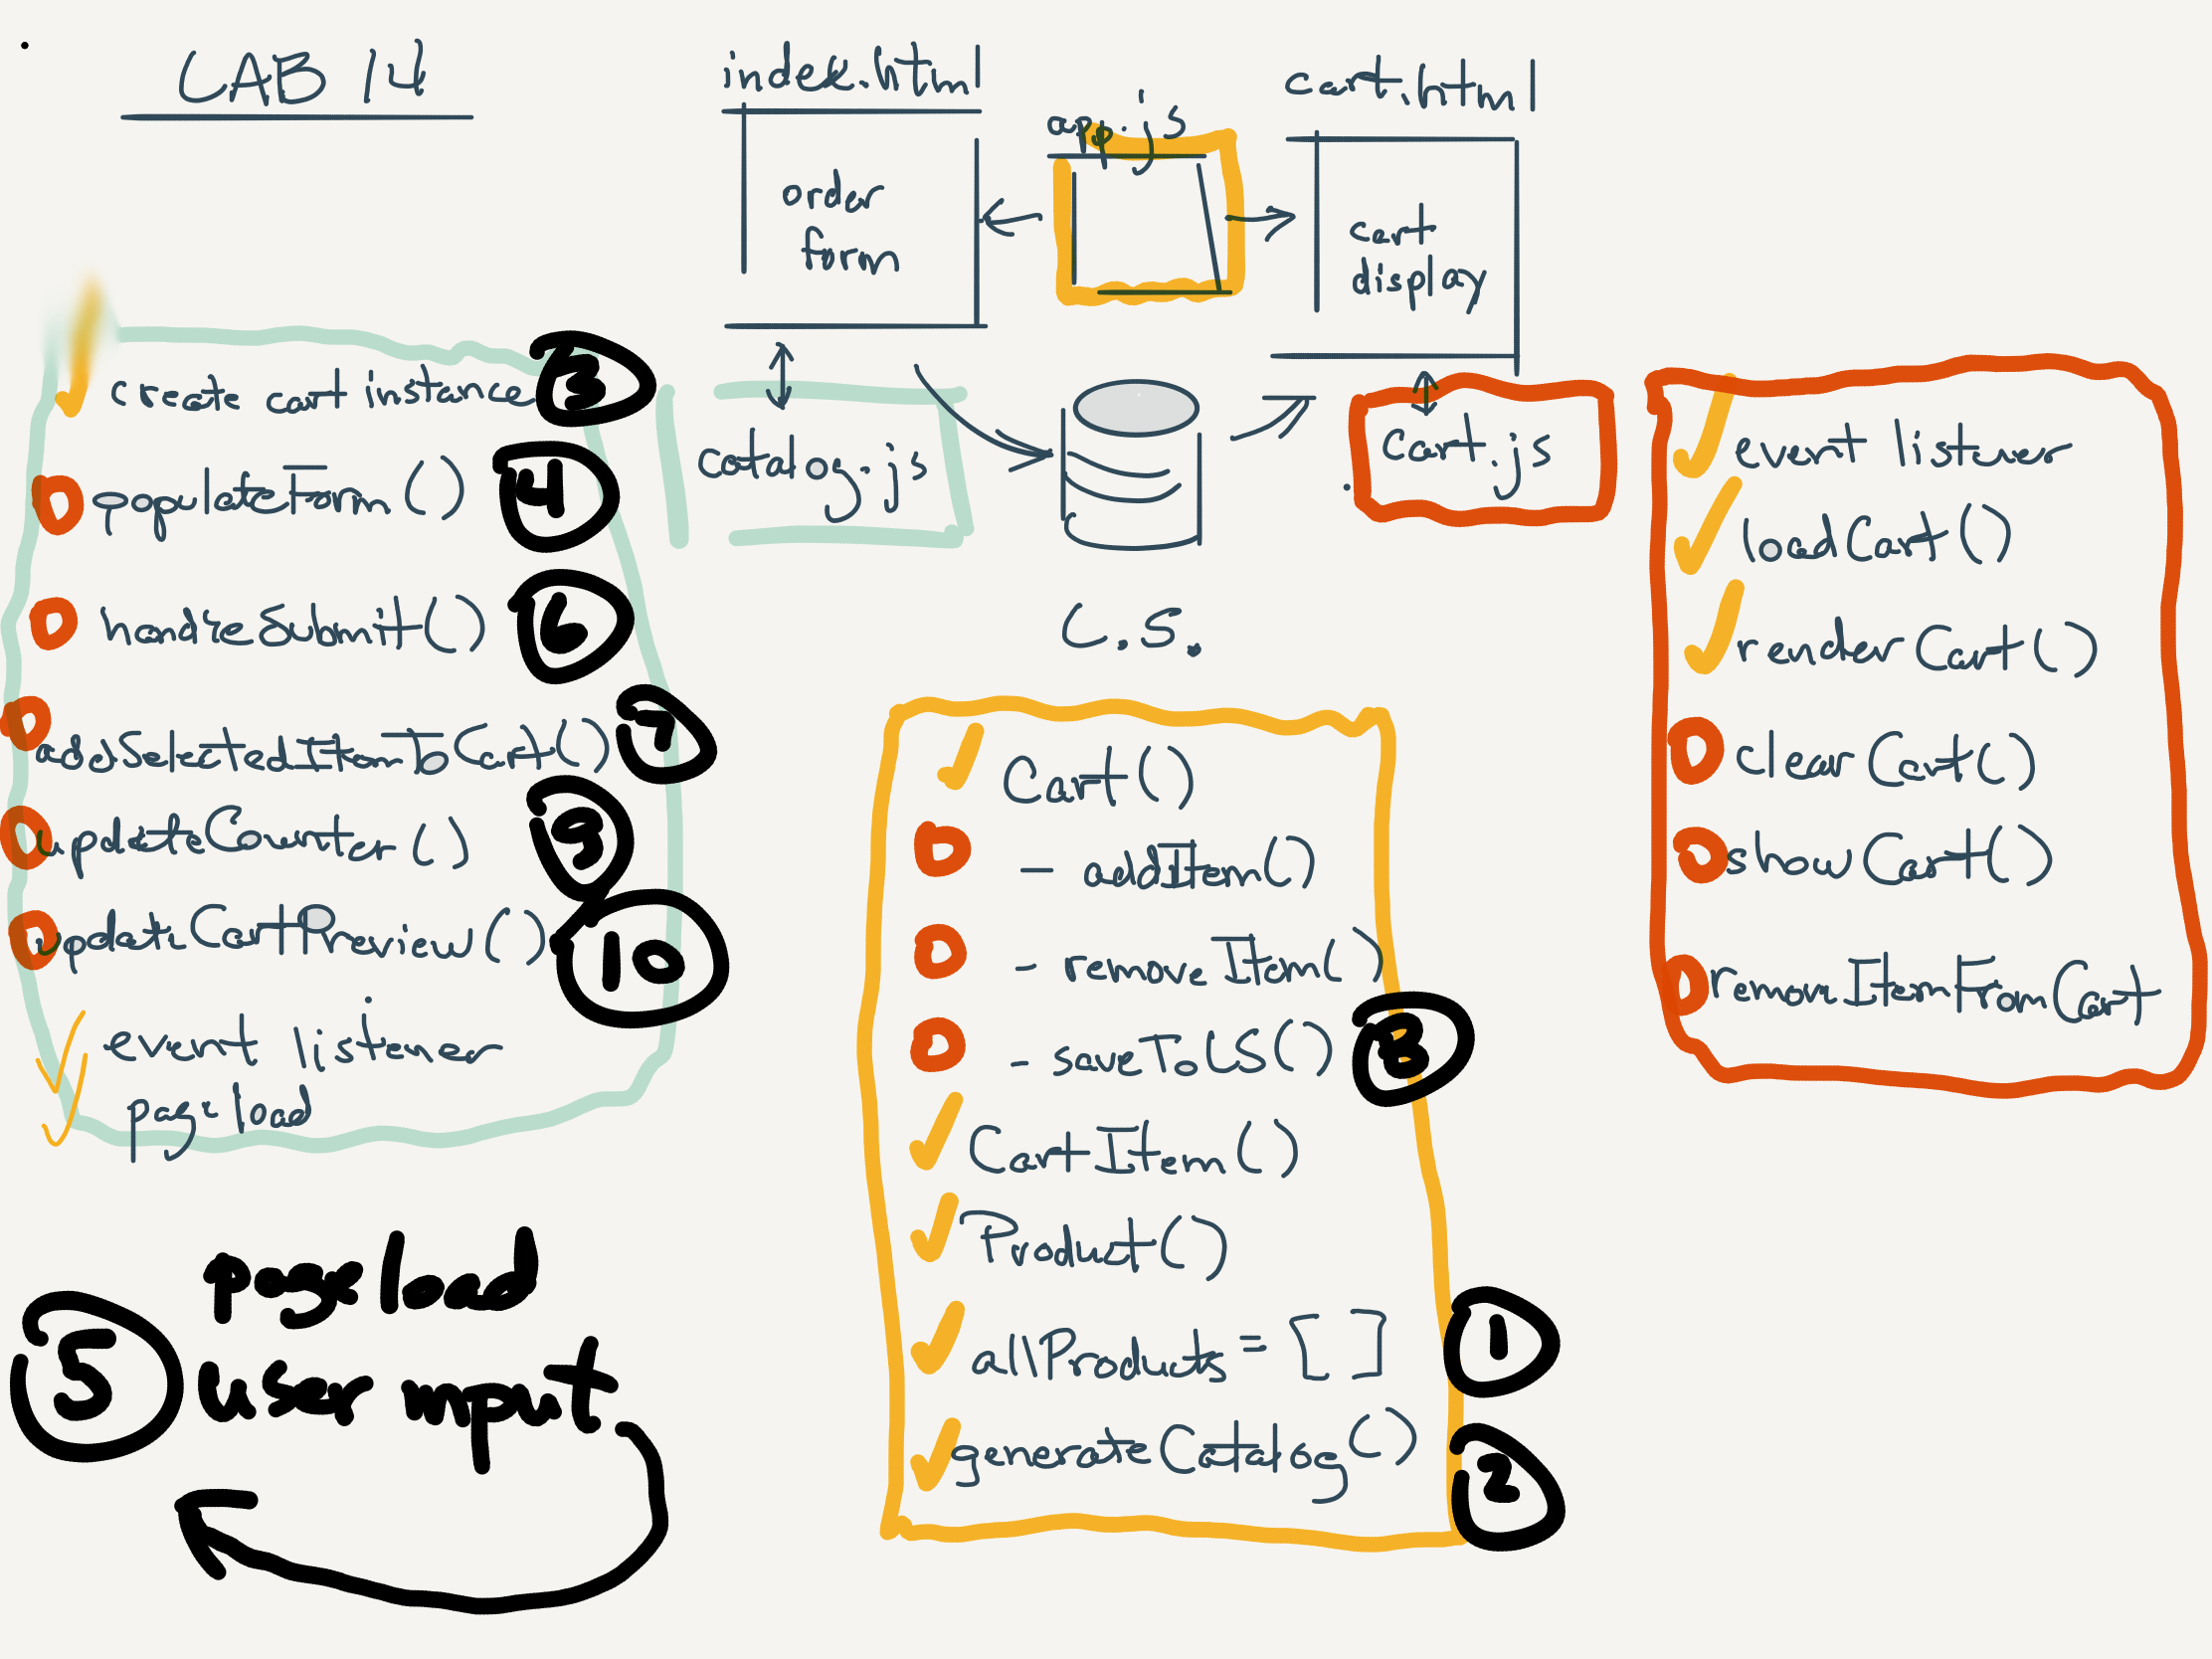 LAB 14
index.html
app.js
cart.html
order
form
cart
display
catalog.js
cart.js
L.S.
create cart instance 3
populateForm() 4
handleSubmit() 6
addSelectedItemToCart() 7
updateCounter() 9
updateCartPreview() 10
event listener
page load
page load
5 user input
Cart()
- addItem()
- removeItem()
- saveToLS() 8
CartItem()
Product()
allProducts = [ ] 1
generateCatalog() 2
event listener
loadCart()
renderCart()
clearCart()
showCart()
removeItemFromCart